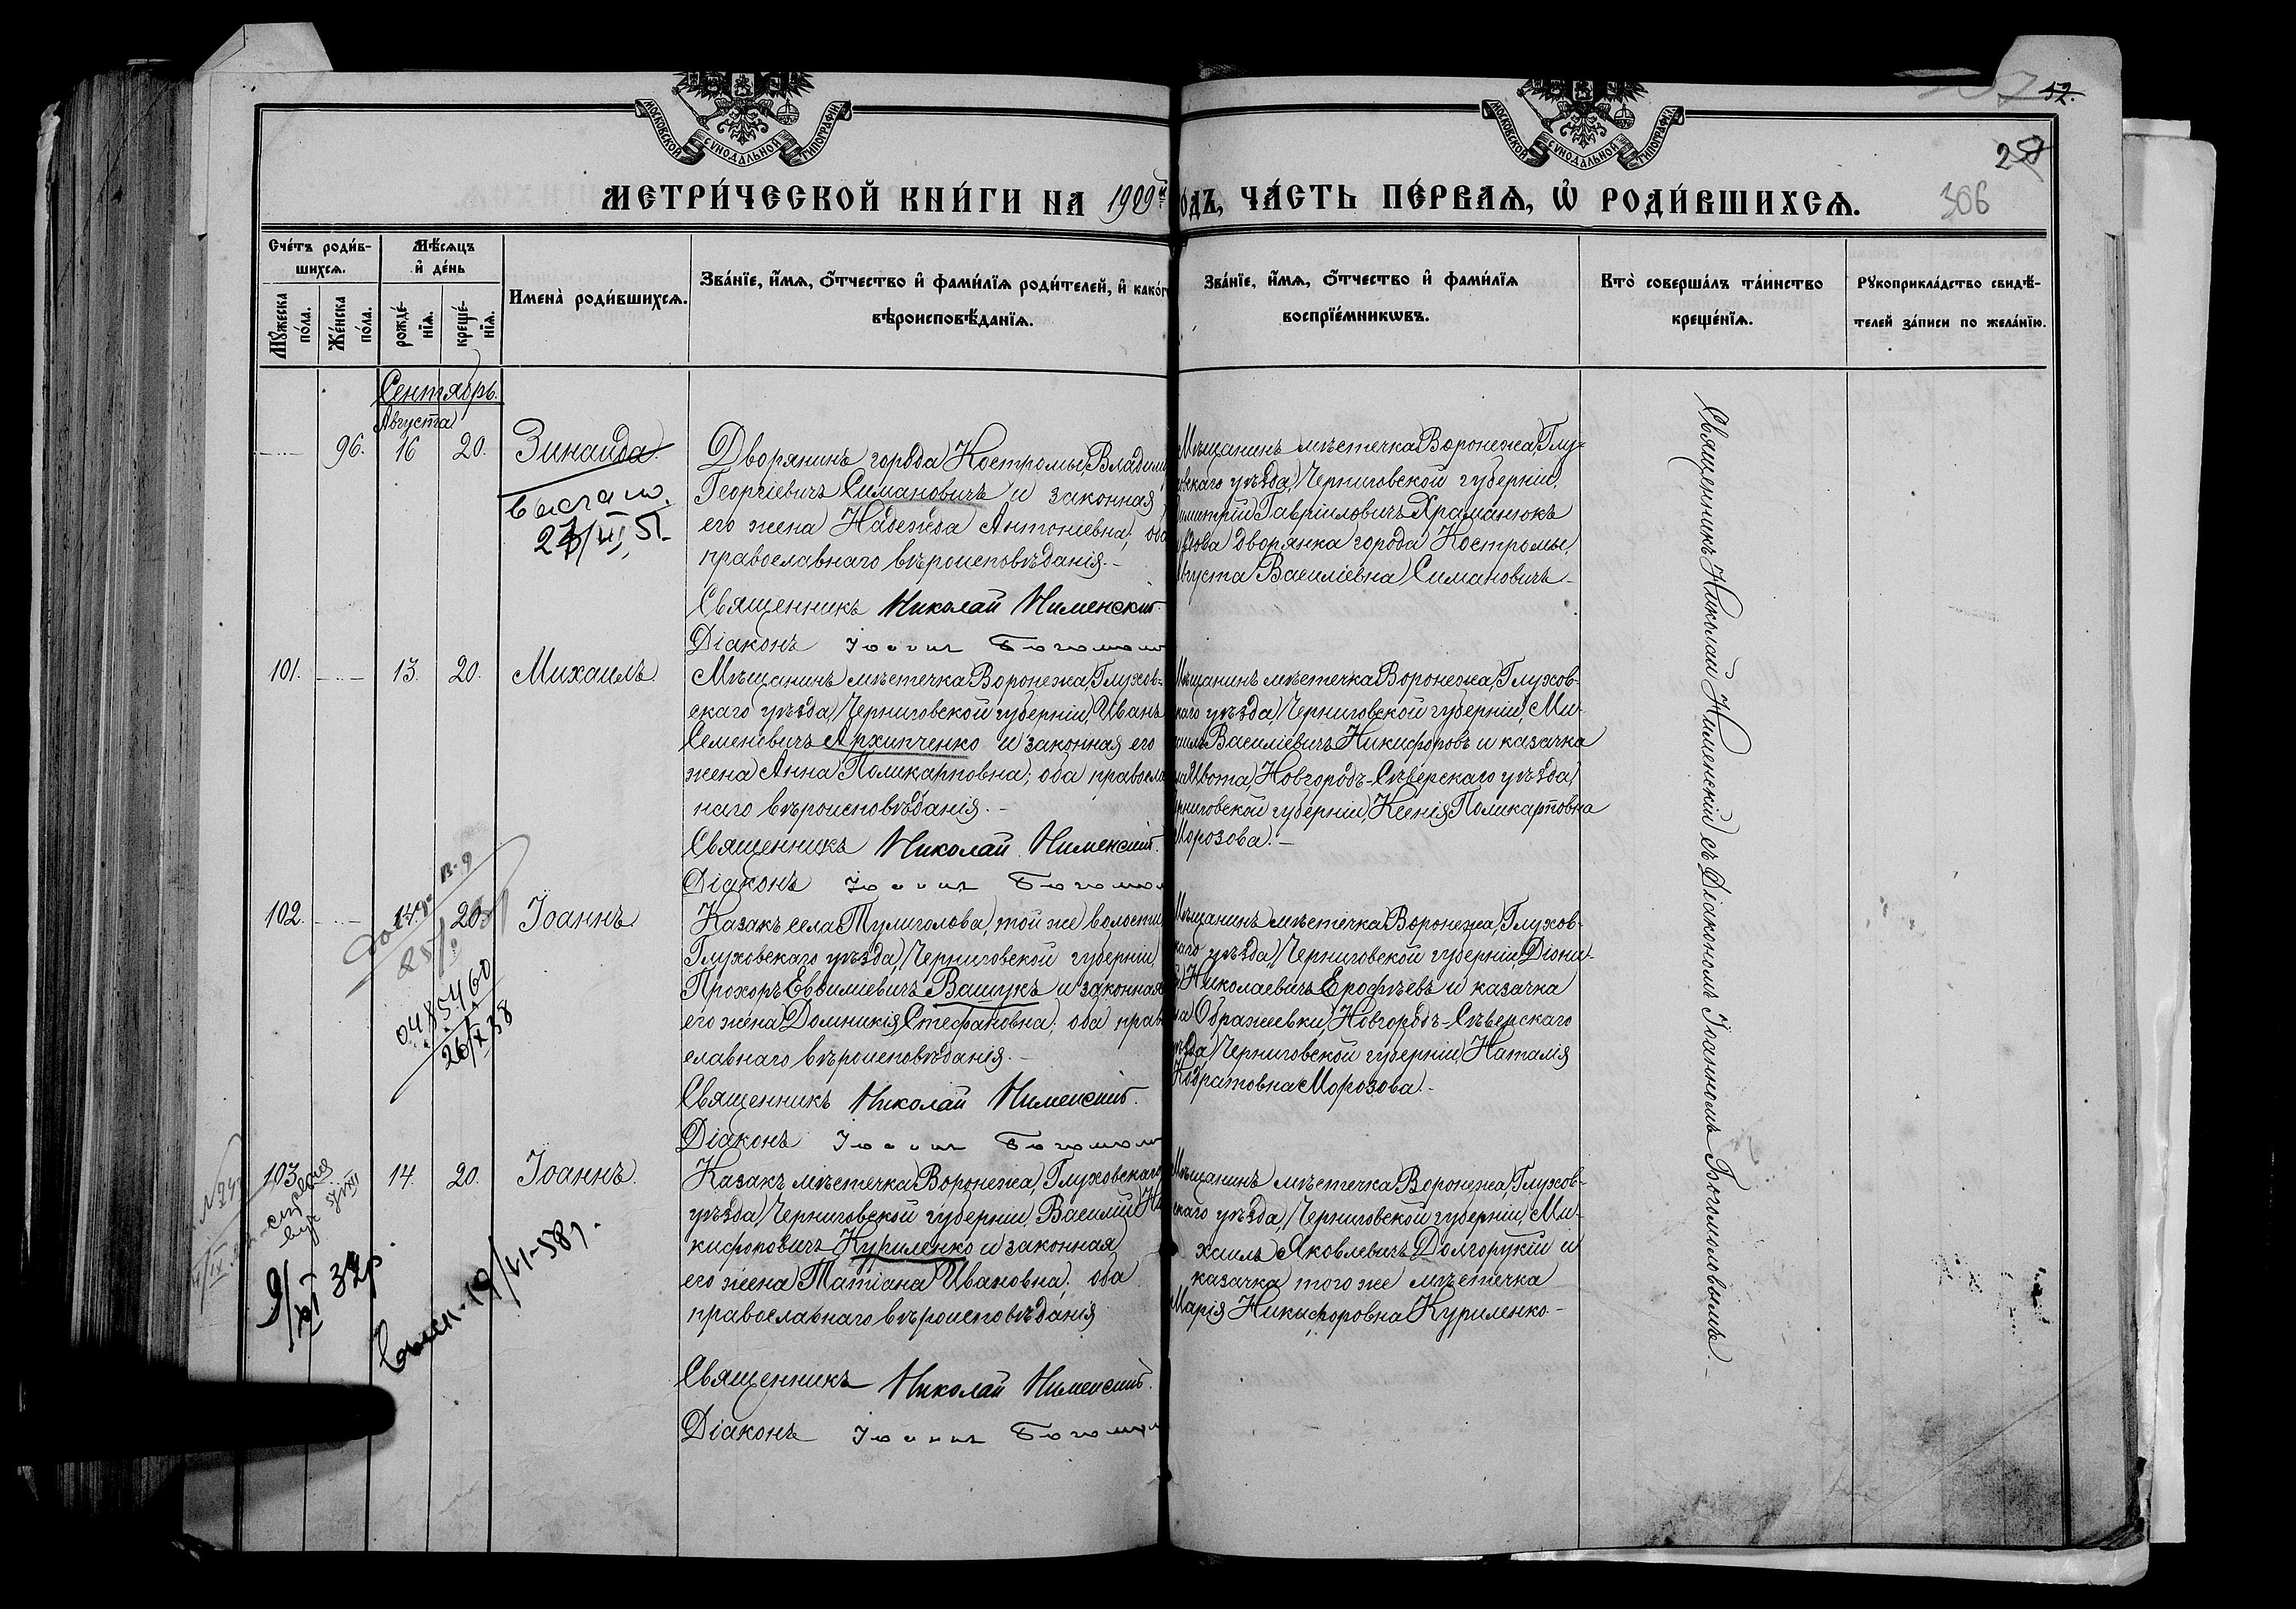 МОСКОВСКОЙ СѴНОДАЛЬНОЙ ТИПОГРАФІИ
МОСКОВСКОЙ СѴНОДАЛЬНОЙ ТИПОГРАФІИ
52.
257
306
МЕТРИ́ЧЕСКОЙ КНИ́ГИ НА 1909й
о́дъ, ЧА́СТЬ ПЕ́РВАѦ, Ѡ҆ РОДИ́ВШИХСѦ.
Сче́тъ роди́в-
шихсѧ.
Мꙋ́жеска по́ла.
Же́нска по́ла.
Мѣ́сѧцъ
и҆ де́нь
рожде́-
нїѧ.
креще́-
нїѧ.
Имена̀ роди́вшихсѧ.
Зва́нїе, и҆́мѧ, ѻ҆́тчество и҆ фами́лїѧ роди́телей, и҆ како́г
вѣроисповѣ́данїѧ.
Зва́нїе, и҆́мѧ, ѻ҆́тчество и҆ фами́лїѧ
воспрїе́мникѡвъ.
Кто̀ соверша́лъ та́инство
креще́нїѧ.
Рꙋкоприкла́дство свидѣ́-
телей за́писи по жела́нїю.
Сентябрь.
Августа
96. 16 20. Зинаида.
27/III, 51
Дворянинъ города Костромы, Владими
Георгіевичъ Симановичъ и законная
его жена Надежда Антоніевна; оба
православнаго вѣроисповѣданія. -
Священникъ Николай Нименскій.
Діаконъ Іоаннъ Богомол
Мѣщанинъ мѣстечка Воронежа, Глу-
вскаго уѣзда, Черниговской губерніи,
имитрій Гавріиловичъ Храманюкъ
вдова дворянка города Костромы,
вгуста Василіевна Симановичъ -
101. 13. 20. Михаилъ
Мѣщанинъ мѣстечка Воронежа, Глухов-
скаго уѣзда, Черниговской губерніи, Иванъ
Семеновичъ Архипченко и законная его
жена Анна Поликарповна; оба правосла
наго вѣроисповѣданія. -
Священникъ Николай Нименскій.
Діаконъ Іоаннъ Богомол
Мѣщанинъ мѣстечка Воронежа, Глухов-
каго уѣзда, Черниговской губерніи, Ми-
хаилъ Василіевичъ Никифоровъ и казачка
ла Ивота, Новгородъ-Сѣверскаго уѣзда,
рниговской губерніи, Ксенія Поликарповна
Морозова. -
102. 14. 20. Іоаннъ
0485460
26/X 38
Казакъ села Тулиголова, той же волости,
Глуховскаго уѣзда, Черниговской губерніи,
Прохоръ Евѳиміевичъ Вашукъ и законная
его жена Домникія Стефановна; оба прав
славнаго вѣроисповѣданія. -
Священникъ Николай Нименскій.
Діаконъ Іоаннъ Богомол
Мѣщанинъ мѣстечка Воронежа, Глухов-
каго уѣзда, Черниговской губерніи, Діони-
й Николаевичъ Ерофѣевъ и казачка
ла Ображеевки, Новгородъ-Сѣверскаго
ѣзда, Черниговской губерніи, Наталія
Кодратовна Морозова. -
103. 14. 20. Іоаннъ.
9/XI 32р.
Казакъ мѣстечка Воронежа, Глуховскаго
уѣзда, Черниговской губерніи, Василій Ни
кифоровичъ Куриленко и законная
его жена Татіана Ивановна; оба
православнаго вѣроисповѣданія
Священникъ Николай Нименскій.
Діаконъ Іоаннъ Богомол
Мѣщанинъ мѣстечка Воронежа, Глухов-
скаго уѣзда, Черниговской губерніи, Ми-
хаилъ Яковлевичъ Долгорукій и
казачка того же мѣстечка
Марія Никифоровна Куриленко -
Священникъ Николай Нименскій съ Діакономъ Іоанномъ Богомоловымъ. -